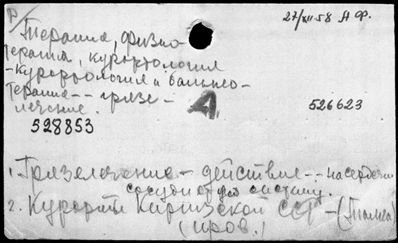 27/XII 58 А Ф.
Терапия, физио-
терапия, курортология
-курортология и бальнео-
терапия -- грязе -
лечение.
А.
526623
528853
1. Грязелечение - действия -- на сердечно
сосудистую систему.
2. Курорты Киргизской ССР - 
(пров.)